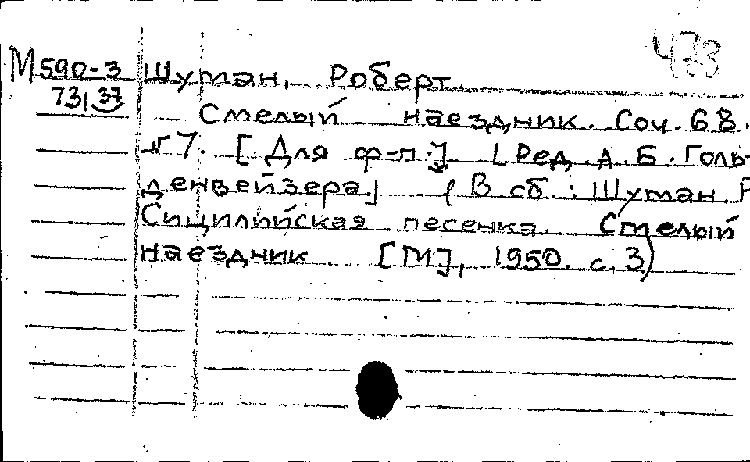 М590-3 Шуман, Роберт
73/37
Смелый наездник. Соч. 68.
№7. [Для ф-п.] [Ред. А. Б. Голь-
денвейзера] (В сб.: Шуман Р
Сицилийская песенка. Смелый
наездник [М], 1950. с. 3)